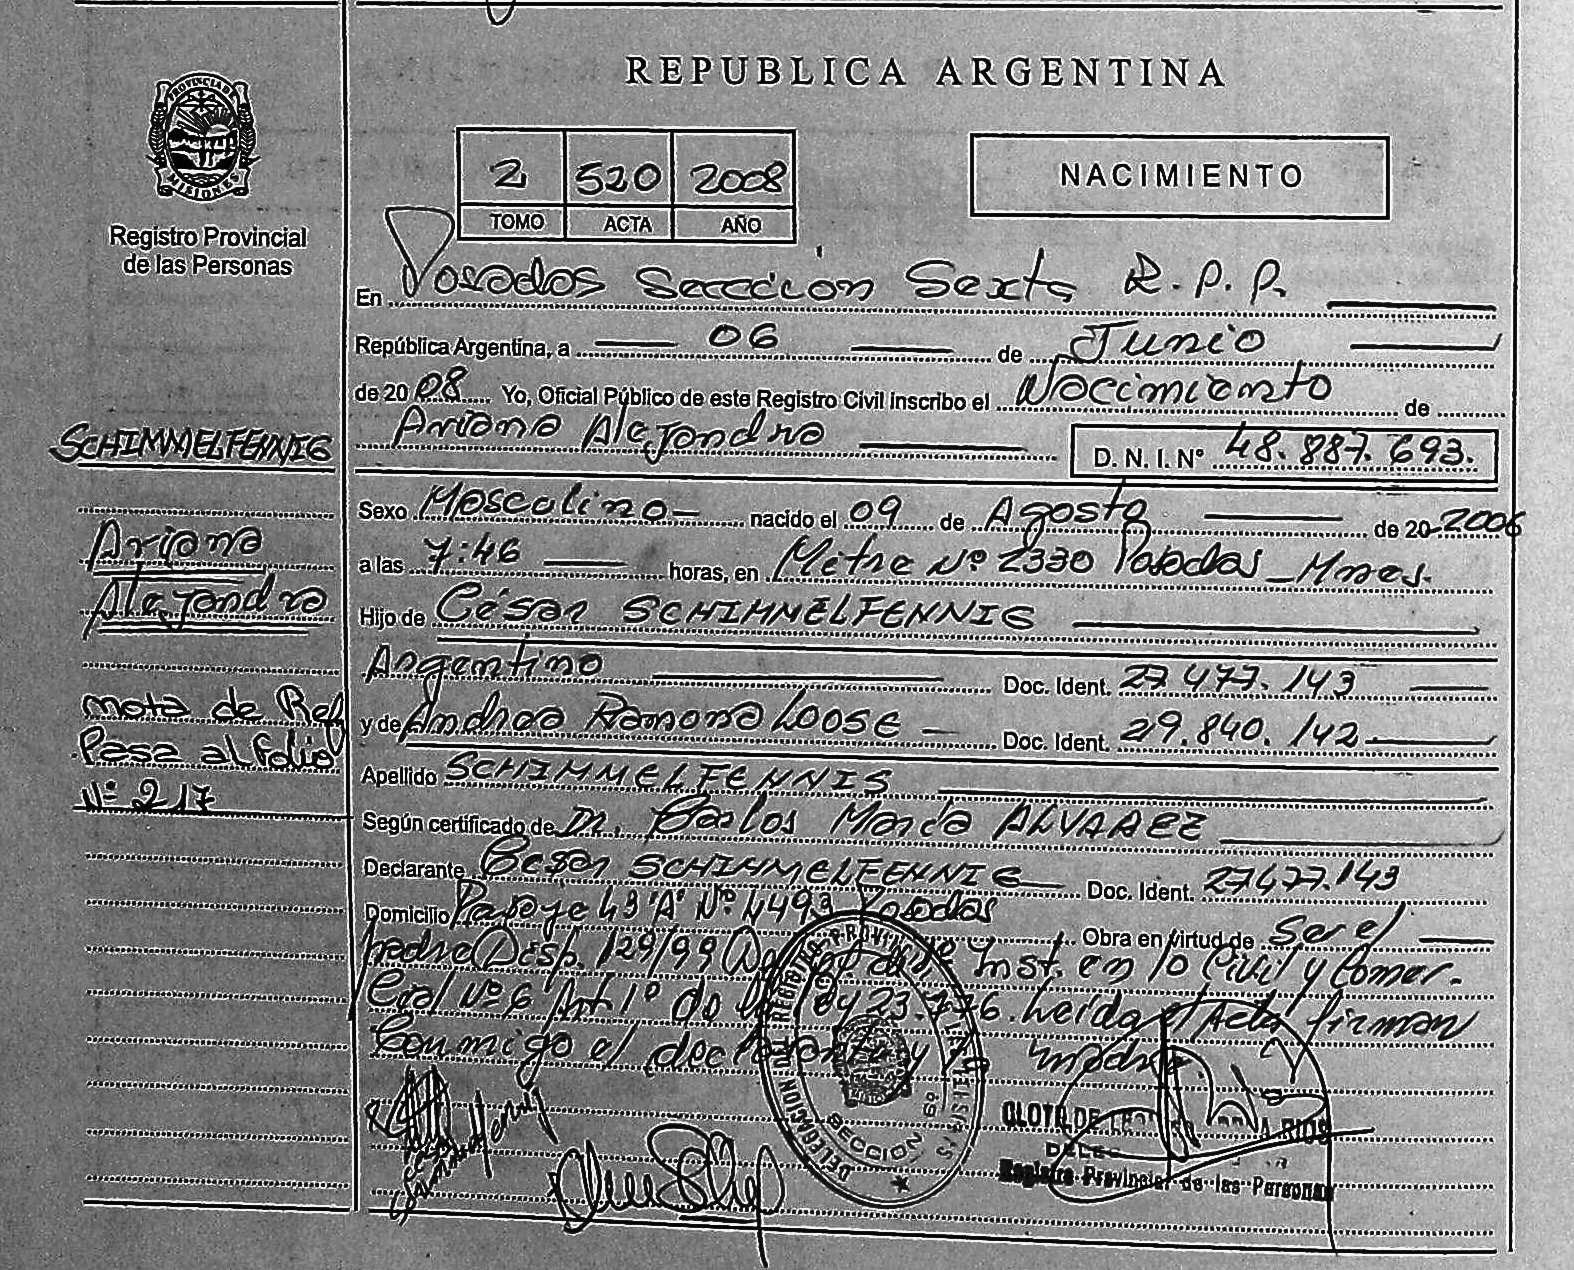 REPUBLICA ARGENTINA
PROVINCIA DE MISIONES
Registro Provincial
de las Personas
2 520 2008
TOMO ACTA AÑO
NACIMIENTO
En Posadas Sección Sexta R.P.P.
República Argentina, a 06 de Junio
de 2008. Yo, Oficial Público de este Registro Civil inscribo el Nacimiento de
Ariana Alejandra D. N. I. Nº 48.887.693.
SCHIMMELFENNIG
Ariana
Alejandra
nota de Ref
Pasa al folio
Nº 217
Sexo Masculino nacido el 09 de Agosto de 20 2006
a las 7:46 horas, en Mitre Nº 2330 Posadas - Mnes.
Hijo de César SCHIMMELFENNIG
Argentino Doc. Ident. 27.477.143
y de Andrea Ramona LOOSE Doc. Ident. 29.840.142
Apellido SCHIMMELFENNIG
Según certificado de Dr. Carlos María ALVAREZ
Declarante César SCHIMMELFENNIG Doc. Ident. 27477.143
Domicilio 43 "A" Nº 4493 Posadas Obra en virtud de Ser el
padre Disp. 129/99 Inst. en lo Civil y Comer-
cial Nº 6 Art 1º de 23.776. Leída el Acta firman
Conmigo el declarante y madre.
DELEGACION DEL REGISTRO PROVINCIAL
SECCION 6º
Registro Provincial de las Personas